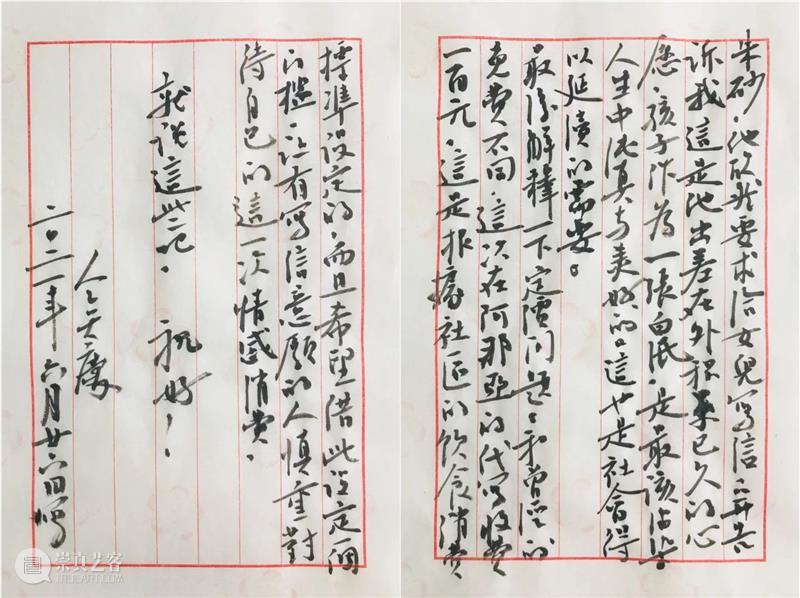 朱砂，他欣然要求給女兒寫信，并告
訴我這是他出差在外積累已久的心
愿，孩子作為一張白紙，是最該
人生中純真与美好的。這也是社會得
以延續的需要。
最後解釋一下定價問題：和曾經的
免費不同，這次在阿那亞的代寫收費
一百元，這是根據社區的飲食消費
標準設定的，而且希望借此設定一個
門檻，讓有寫信意願的人慎重對
待自己的這一次情感消費。
就說這些吧。 祝好！
二〇二一年六月廿六日
崇真艺客
TRUEART.COM